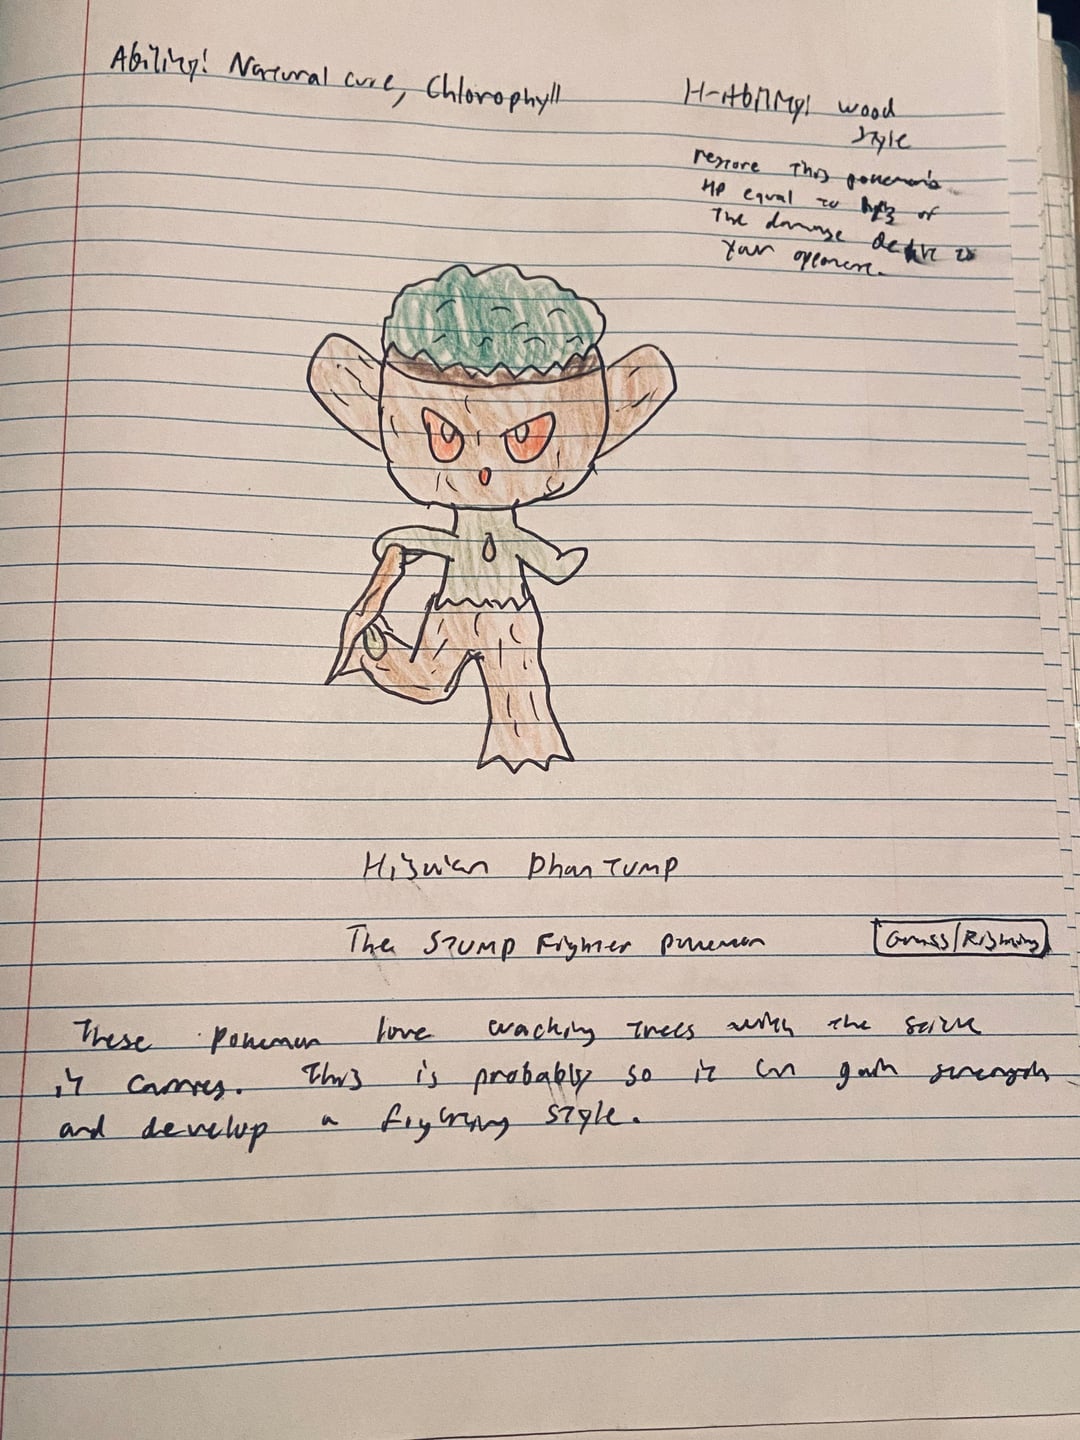 Ability! Natural cure, Chlorophyll
H-Ability! wood
style
restore this pokemon's
HP equal to of
the damage dealt to
your opponent.
Hisuian Phantump
The Stump Fighter pokemon
Grass/Fighting
These pokemon love wacking trees with the stick
it carries. This is probably so it can gain strength
and develop a fighting style.